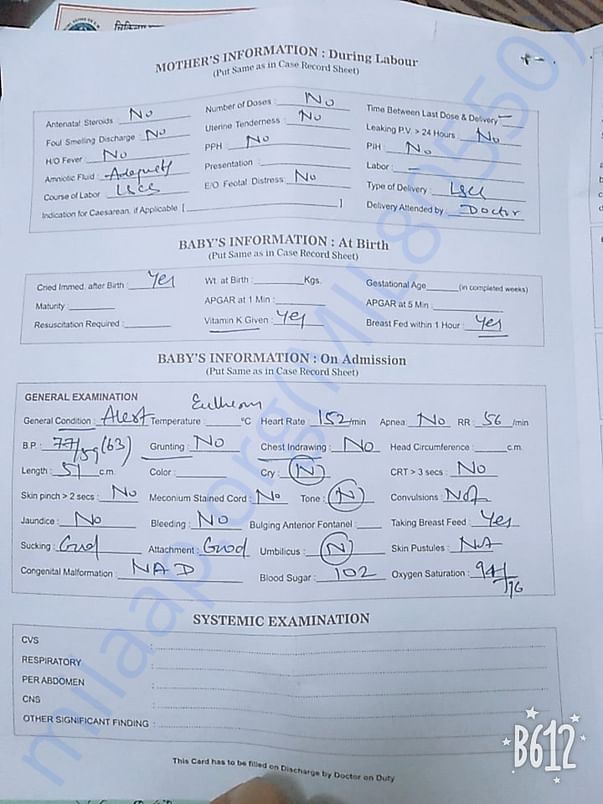 MOTHER'S INFORMATION : During Labour
(Put Same as in Case Record Sheet)
Antenatal Steroids : No Number of Doses : No Time Between Last Dose & Delivery –
Foul Smelling Discharge : No Uterine Tenderness : No Leaking P.V. > 24 Hours : No
H/O Fever : No PPH : No PIH : No
Amniotic Fluid : Presentation : Labor : –
Course of Labor : LSCS E/O Feotal Distress : No Type of Delivery : LSCS
Indication for Caesarean, if Applicable [ ] Delivery Attended by : Doctor
BABY'S INFORMATION : At Birth
(Put Same as in Case Record Sheet)
Cried Immed. after Birth : Yes Wt. at Birth : Kgs. Gestational Age (in completed weeks)
Maturity : APGAR at 1 Min : APGAR at 5 Min :
Resuscitation Required : Vitamin K Given : Yes Breast Fed within 1 Hour : Yes
BABY'S INFORMATION : On Admission
(Put Same as in Case Record Sheet)
GENERAL EXAMINATION
General Condition : Alert Temperature : °C Heart Rate : 152/min Apnea : No RR : 56 /min
B.P. : 77/59 (63) Grunting : No Chest Indrawing : No Head Circumference : c.m.
Length : 51 c.m. Color : Cry : N CRT > 3 secs : No
Skin pinch > 2 secs : No Meconium Stained Cord : No Tone : N Convulsions
Jaundice : No Bleeding : No Bulging Anterior Fontanel : Taking Breast Feed : Yes
Sucking : Good Attachment : Good Umbilicus : N Skin Pustules : NA
Congenital Malformation : NAD Blood Sugar : 102 Oxygen Saturation : 94/96
SYSTEMIC EXAMINATION
CVS :
RESPIRATORY :
PER ABDOMEN :
CNS :
OTHER SIGNIFICANT FINDING :
This Card has to be filled on Discharge by Doctor on Duty
milaap.org(MIL80550)
B612